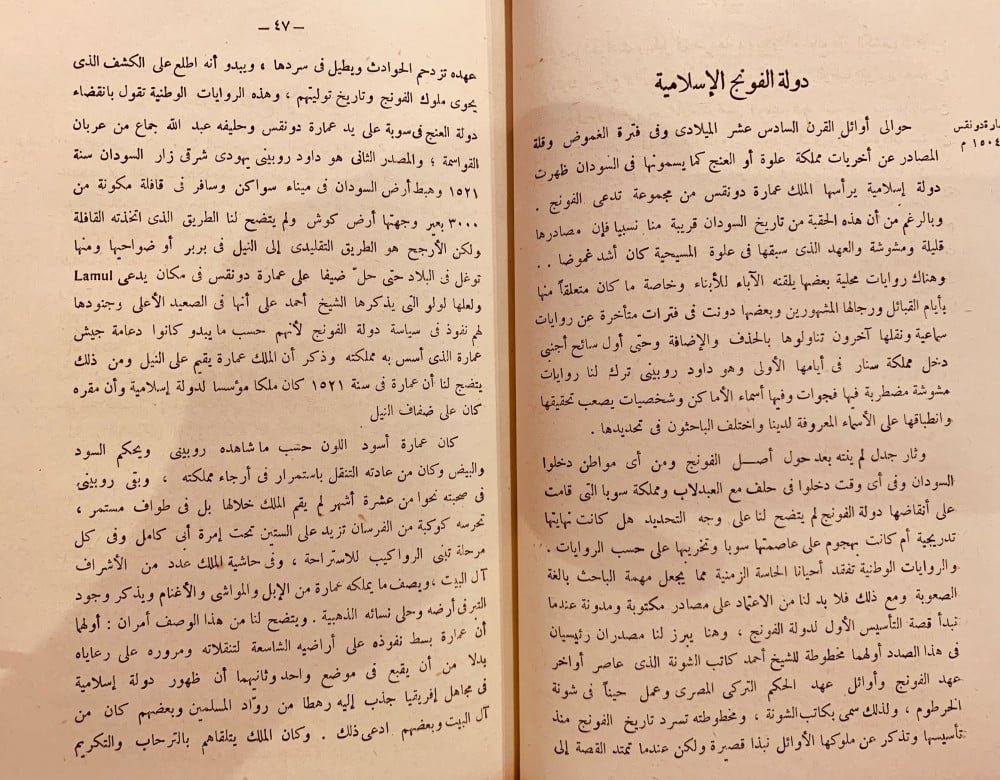 دولة الفونج الإسلامية
عمارة دونقس
١٥٠٤ م
حوالى أوائل القرن السادس عشر الميلادى وفى فترة الغموض وقلة
المصادر عن أخريات مملكة علوة أو العنج كما يسمونها فى السودان ظهرت
دولة إسلامية يرأسها الملك عمارة دونقس من مجموعة تدعى الفونج .
وبالرغم من أن هذه الحقبة من تاريخ السودان قريبة منا نسبيا فإن مصادرها
قليلة ومشوشة والعهد الذى سبقها فى علوة المسيحية كان أشد غموضا . .
وهناك روايات محلية بعضها يلقنه الآباء للأبناء وخاصة ما كان متعلقاً منها
بأيام القبائل ورجالها المشهورين وبعضها دونت فى فترات متأخرة عن روايات
سماعية ونقلها آخرون تناولوها بالحذف والإضافة وحتى أول سائح أجنبى
دخل مملكة سنار فى أيامها الأولى وهو داود روبينى ترك لنا روايات
مشوشة مضطربة فيها فجوات وفيها أسماء الأماكن وشخصيات يصعب تحقيقها
وانطباقها على الأسماء المعروفة لدينا واختلف الباحثون فى تحديدها .
وثار جدل لم ينته بعد حول أصل الفونج ومن أى مواطن دخلوا
السودان وفى أى وقت دخلوا فى حلف مع العبدلاب ومملكة سوبا التى قامت
على أنقاضها دولة الفونج لم يتضح لنا على وجه التحديد هل كانت نهايتها
تدريجية أم كانت بهجوم على عاصمتها سوبا وتخريبها على حسب الروايات .
والروايات الوطنية تفقد أحيانا الحاسة الزمنية مما يجعل مهمة الباحث بالغة
الصعوبة ومع ذلك فلا بد لنا من الاعتماد على مصادر مكتوبة ومدونة عندما
نبدأ قصة التأسيس الأول لدولة الفونج ، وهنا يبرز لنا مصدران رئيسيان
فى هذا الصدد أولهما مخطوطة للشيخ أحمد كاتب الشونة الذى عاصر أواخر
عهد الفونج وأوائل عهد الحكم التركى المصرى وعمل حيناً فى شونة
الخرطوم ، ولذلك سمى بكاتب الشونة ، ومخطوطته تسرد تاريخ الفونج منذ
تأسيسها وتذكر عن ملوكها الأوائل نبذا قصيرة ولكن عندما تمتد القصة إلى
— ٤٧ —
عهده تزدحم الحوادث ويطيل فى سردها ، ويبدو أنه اطلع على الكشف الذى
يحوى ملوك الفونج وتاريخ توليتهم ، وهذه الروايات الوطنية تقول بانقضاء
دولة العنج فى سوبة على يد عمارة دونقس وحليفه عبد الله جماع من عربان
القواسمة ؛ والمصدر الثانى هو داود روبينى يهودى شرقى زار السودان سنة
١٥٢١ وهبط أرض السودان فى ميناء سواكن وسافر فى قافلة مكونة من
٣٠٠٠ بعير وجهتها أرض كوش ولم يتضح لنا الطريق الذى اتخذته القافلة
ولكن الأرجح هو الطريق التقليدى إلى النيل فى بربر أو ضواحيها ومنها
توغل فى البلاد حتى حلّ ضيفا على عمارة دونقس فى مكان يدعى Lamul
ولعلها لولو التى يذكرها الشيخ أحمد على أنها فى الصعيد الأعلى وجنودها
لهم نفوذ فى سياسة دولة الفونج لأنهم حسب ما يبدو كانوا دعامة جيش
عمارة الذى أسس به مملكته وذكر أن الملك عمارة يقيم على النيل ومن ذلك
يتضح لنا أن عمارة فى سنة ١٥٢١ كان ملكا مؤسسا لدولة إسلامية وأن مقره
كان على ضفاف النيل
كان عمارة أسود اللون حسب ما شاهده روبينى ويحكم السود
والبيض وكان من عادته التنقل باستمرار فى أرجاء مملكته ، وبقى روبينى
فى صحبته نحوا من عشرة أشهر لم يقم الملك خلالها بل فى طواف مستمر ،
تحرسه كوكبة من الفرسان تزيد على الستين تحت إمرة أبى كامل وفى كل
مرحلة تبنى الرواكيب للاستراحة ، وفى حاشية الملك عدد من الأشراف
آل البيت ، ويصف ما يملكه عمارة من الإبل والمواشى والأغنام ويذكر وجود
التبر فى أرضه وحلى نسائه الذهبية . ويتضح لنا من هذا الوصف أمران : أولهما
أن عمارة بسط نفوذه على أراضيه الشاسعة لتنقلاته ومروره على رعاياه
بدلا من أن يقبع فى موضع واحد وثانيهما أن ظهور دولة إسلامية
فى مجاهل إفريقيا جذب إليه رهطا من روّاد المسلمين وبعضهم كان من
آل البيت وبعضهم ادعى ذلك . وكان الملك يتلقاهم بالترحاب والتكريم